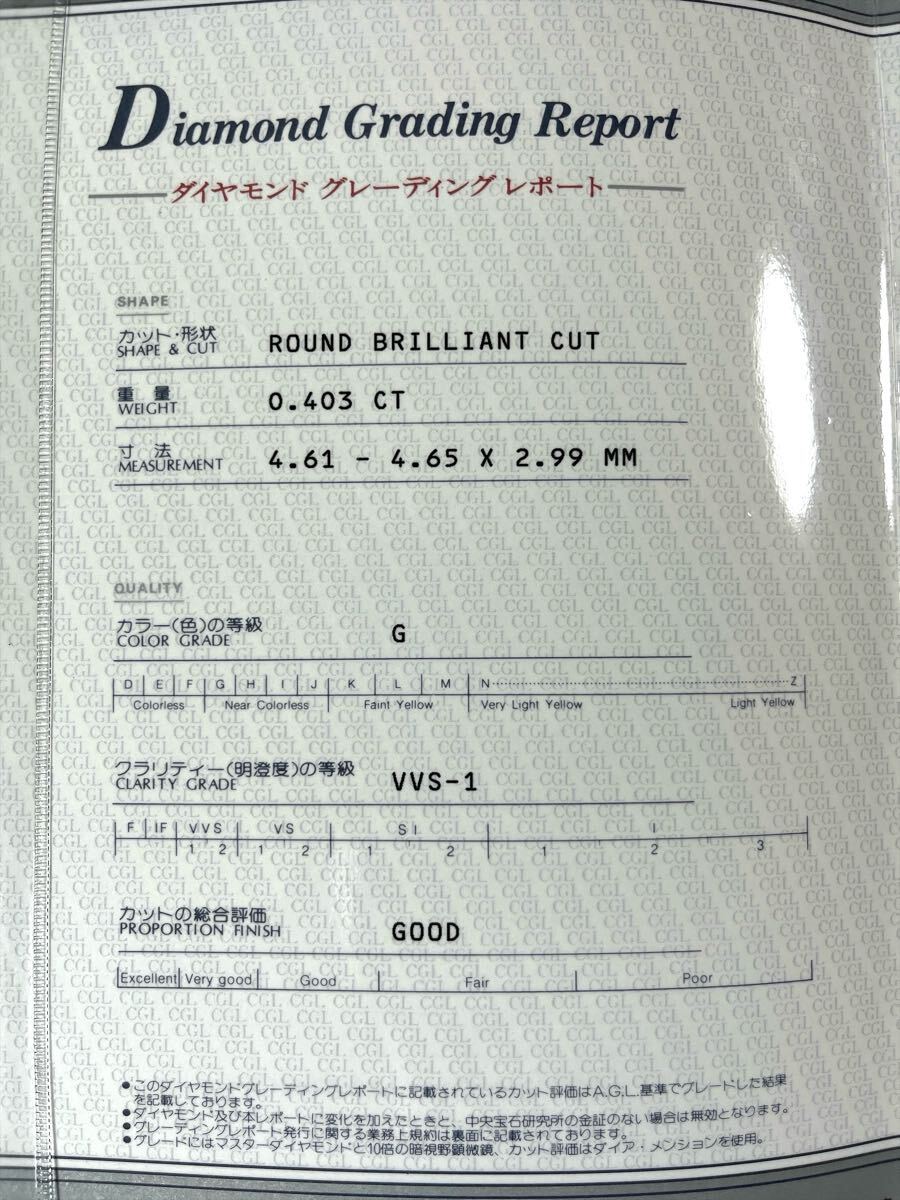 Diamond Grading Report
ダイヤモンド グレーディング レポート
SHAPE
カット・形状
SHAPE & CUT
ROUND BRILLIANT CUT
重 量
WEIGHT
0.403 CT
寸 法
MEASUREMENT
4.61 - 4.65 X 2.99 MM
QUALITY
カラー(色)の等級
COLOR GRADE
G
D E F G H I J K L M N Z
Colorless Near Colorless Faint Yellow Very Light Yellow Light Yellow
クラリティー(明澄度)の等級
CLARITY GRADE
VVS-1
F IF VVS VS SI I
1 2 1 2 1 2 1 2 3
カットの総合評価
PROPORTION FINISH
GOOD
Excellent Very good Good Fair Poor
●このダイヤモンドグレーディングレポートに記載されているカット評価はA.G.L.基準でグレードした結果
を記載しております。
●ダイヤモンド及び本レポートに変化を加えたときと、中央宝石研究所の金証のない場合は無効となります。
●グレーディングレポート発行に関する業務上規約は裏面に記載されております。
●グレードにはマスターダイヤモンドと10倍の暗視野顕微鏡、カット評価はダイア・メンションを使用。